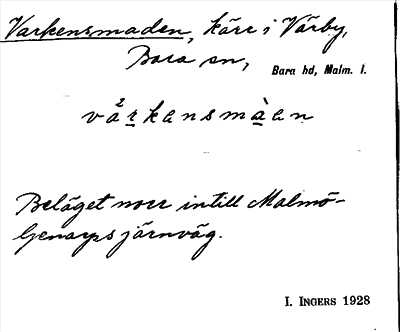 Varkensmaden, kärr i Värby,
Bara sn,
Bara hd, Malm. l.
vår̲kensmà̲en
Beläget norr intill Malmö-
Genarps järnväg.
I. INGERS 1928